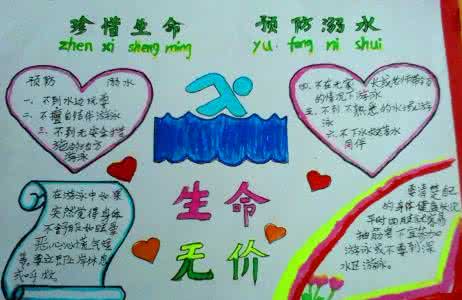 珍惜生命 预防溺水
zhen xi sheng ming yu fang ni shui
预防 溺水
一、不到水边玩耍
二、不擅自结伴游泳
三、不到无安全措
施的地方
游泳
四、不在无家长或老师带领
的情况下游泳
五、不到不熟悉的水域游
泳
六、不下水
同伴
生命
无价
在游泳中如果
突然觉得身体
不舒服如眩晕
恶心心慌气短
等,要立即上岸休息
或呼救。
要清楚自己
的身体健康状况
平时四肢就容易
抽筋者不宜参加
游泳或不要到深
水区游泳。